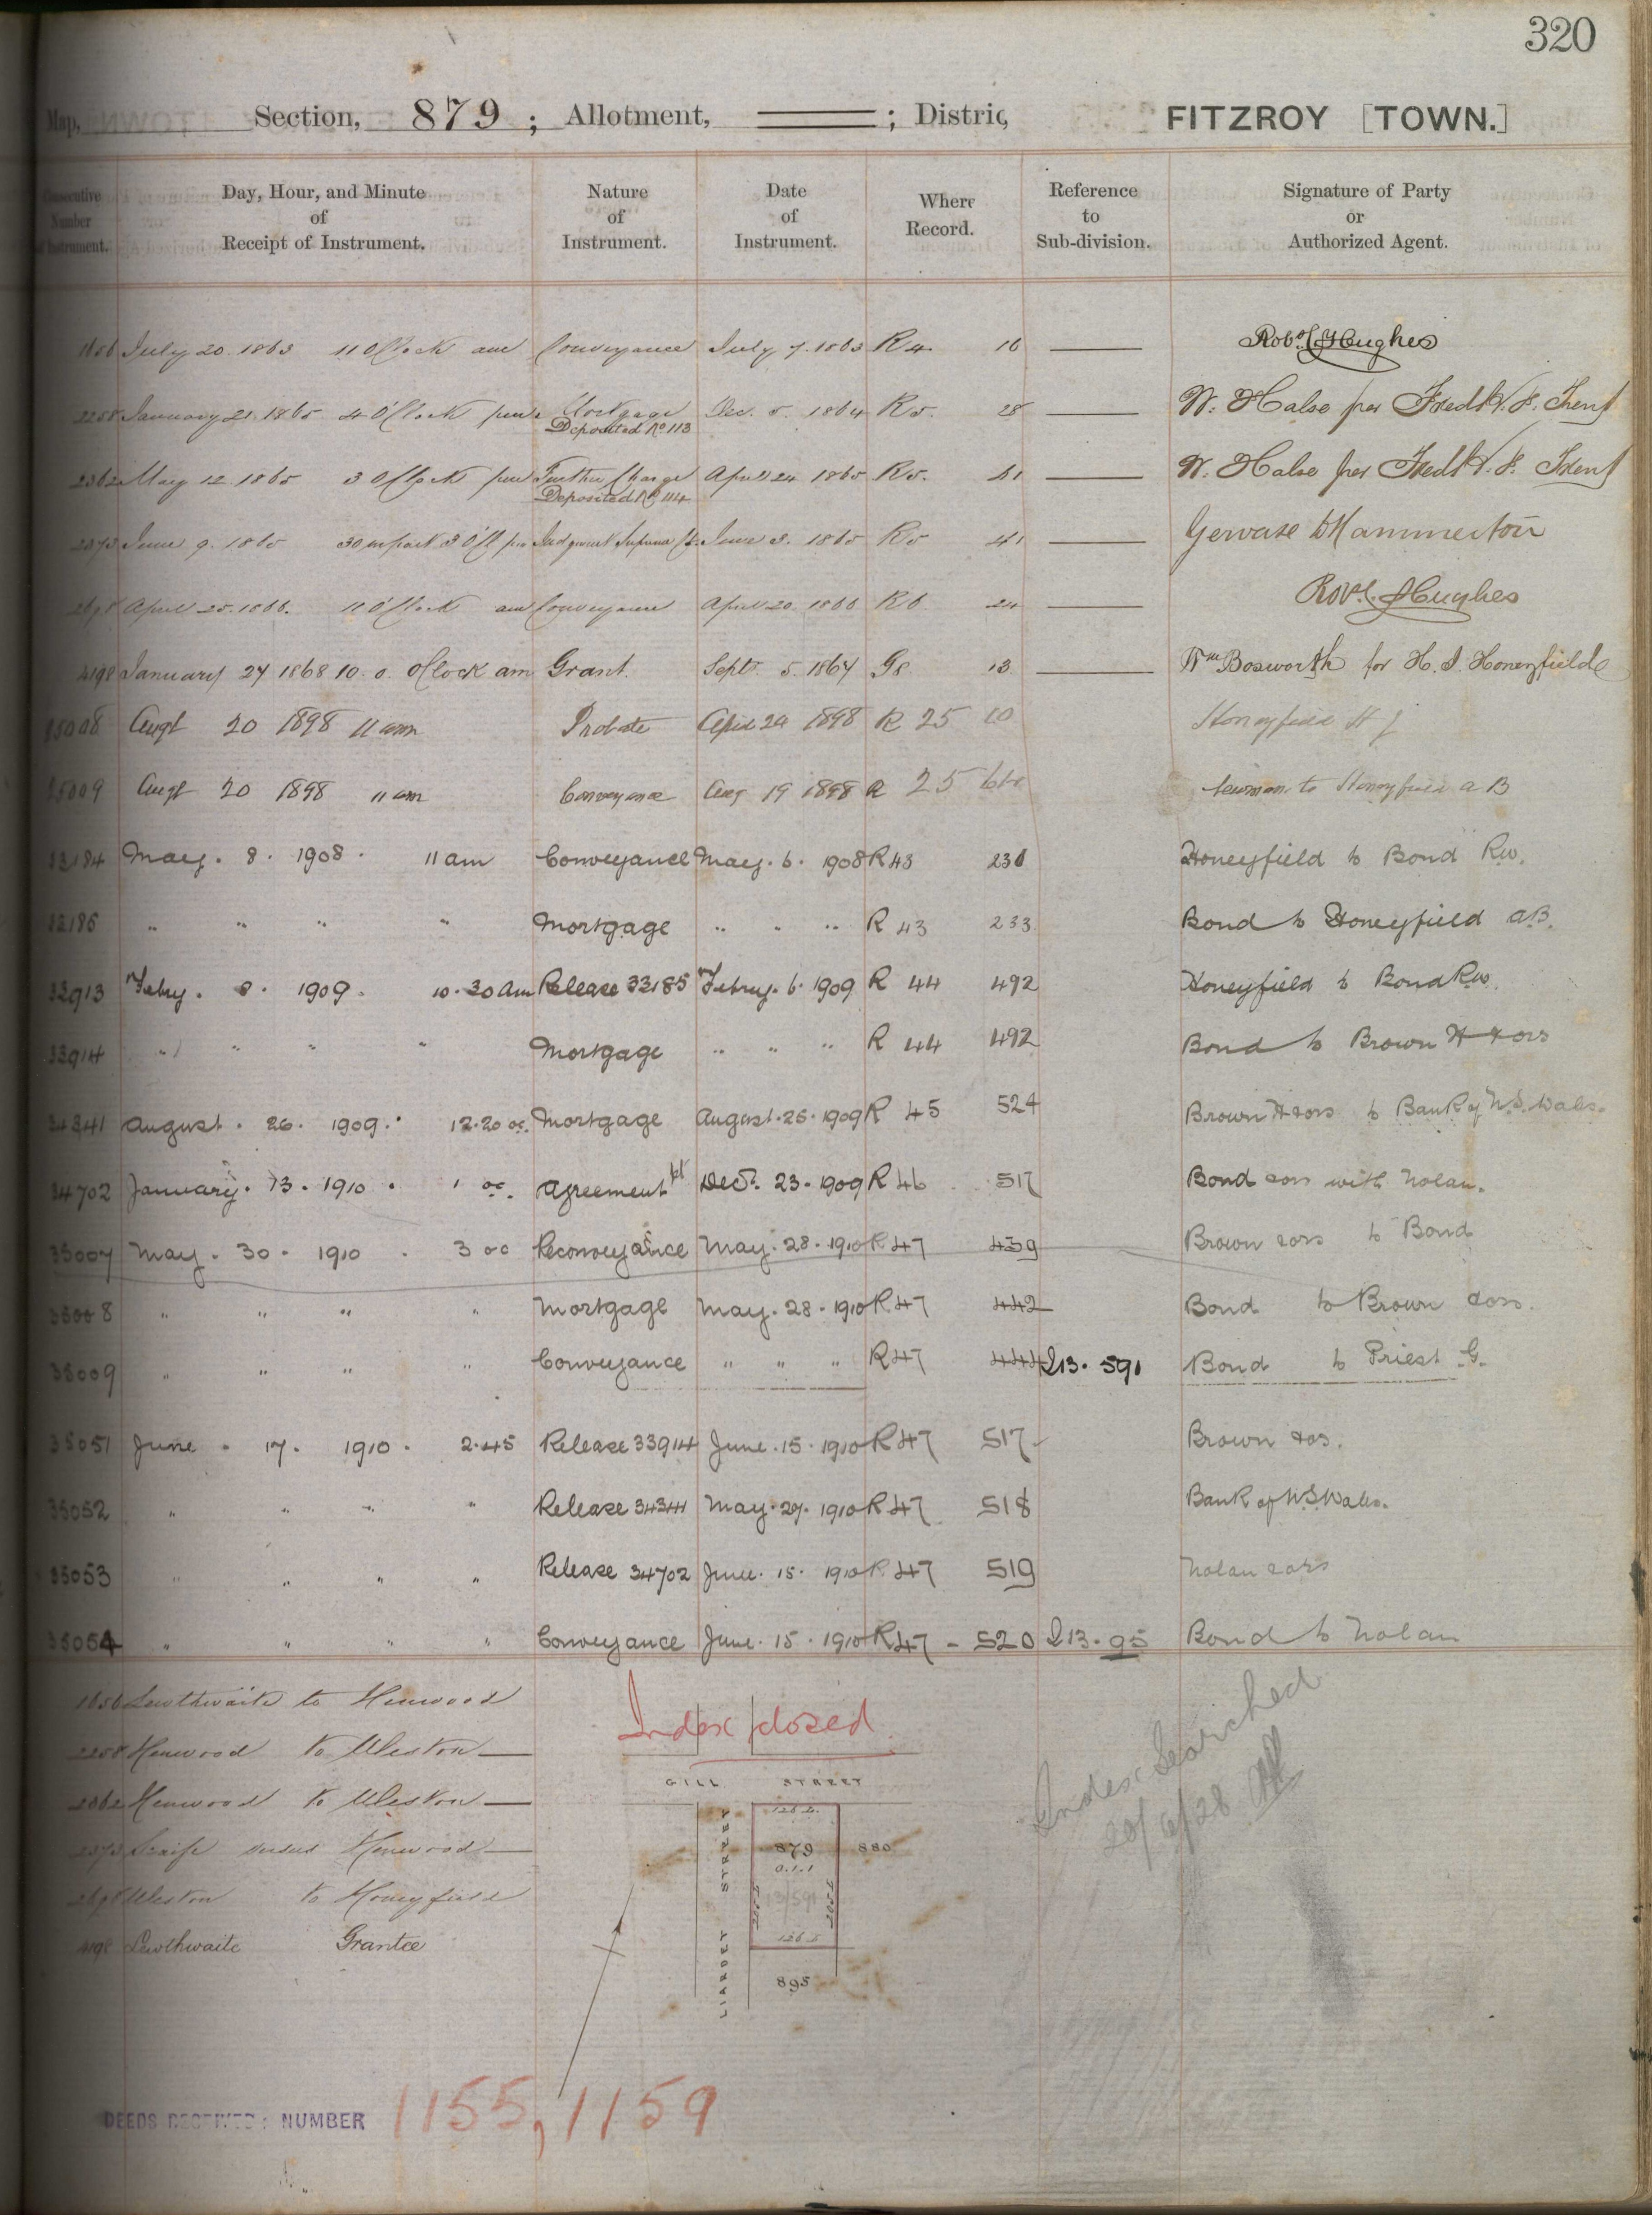 320
Map, Section, 879 ; Allotment, ——— ; Distric, FITZROY [TOWN.]
Consecutive Number of Instrument. Day, Hour, and Minute of Receipt of Instrument. Nature of Instrument. Date of Instrument. Where Record. Reference to Sub-division. Signature of Party or Authorized Agent.
1656 July 20. 1863 11 O'Clock am Conveyance July 7. 1863 R 4. 16 —— Robt Hughes
2258 January 21. 1865 4 O'Clock pm Mortgage Dec. 5. 1864 R 5. 28 —— W. Halse per Fredk. W. J. Trent
Deposited No 113
2362 May 12. 1865 3 O'Clock pm Further Charge April 24 1865 R 5. 41 —— W. Halse per Fredk. W. J. Trent
Deposited No 114
2373 June 9. 1865 30 m past 3 O'Cl pm Judgment Supreme Ct. June 3. 1865 R 5 41 —— Gervase D Hammerton
2698 April 25. 1866. 11 O'Clock am Conveyance April 20. 1866 R 6. 24 —— Robt. Hughes
4198 January 27 1868 10. 0. O'Clock am Grant. Sept. 5. 1864 G8. 13. —— Wm Bosworth for H. J. Honeyfield
15008 Augt 20 1898 11 am Probate April 29 1898 R 25 Honeyfield H J
15009 Augt 20 1898 11 am Conveyance Aug 19 1898 R 25 Newman to Honeyfield A B
33184 May. 8. 1908. 11 am Conveyance May. 6. 1908 R 43 230 Honeyfield to Bond R.W.
33185 " " " " Mortgage " " " R 43 233 Bond to Honeyfield A.B.
33913 Febry. 8. 1909. 10.30 am Release 33185 Febry. 6. 1909 R 44 492 Honeyfield to Bond R.W.
33914 " " " " Mortgage " " " R 44 492 Bond to Brown H & ors
34341 August. 26. 1909. 12.20 oc. Mortgage August. 25. 1909 R 45 524 Brown H & ors to Bank of N.S. Wales.
34702 January. 13. 1910. 1 oc. Agreement pt Decr. 23. 1909 R 46 517 Bond & ors with Nolan.
35007 May. 30. 1910. 3 oc Reconveyance May. 28. 1910 R 47 439 Brown & ors to Bond
35008 " " " " Mortgage May. 28. 1910 R 47 442 Bond to Brown & ors.
35009 " " " " Conveyance " " " R 47 444 I13. 591 Bond to Priest G.
35051 June. 17. 1910. 2.45 Release 33914 June. 15. 1910 R 47 517 Brown & os.
35052 " " " " Release 34341 May. 27. 1910 R 47 518 Bank of N.S. Wales.
35053 " " " " Release 34702 June. 15. 1910 R 47 519 Nolan & ors
35054 " " " " Conveyance June. 15. 1910 R 47 - 520 I13. 95 Bond to Nolan
1656 Lewthwaite to Henwood
2258 Henwood to Weston —
2362 Henwood to Weston —
2373 Scaife versus Henwood —
2698 Weston to Honeyfield
4198 Lewthwaite Grantee
Index closed
Index Searched
20/6/28
GILL STREET
LIARDET STREET
126.5
879
0.1.1
13/591
205.5
205.5
126.5
880
895
DEEDS RECEIVED: NUMBER 1155, 1159